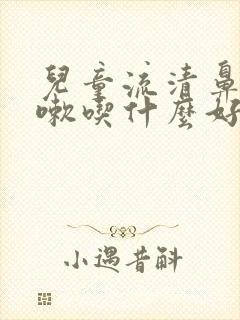 兒童流清鼻
嗽喫什麼好
小遇昔斛